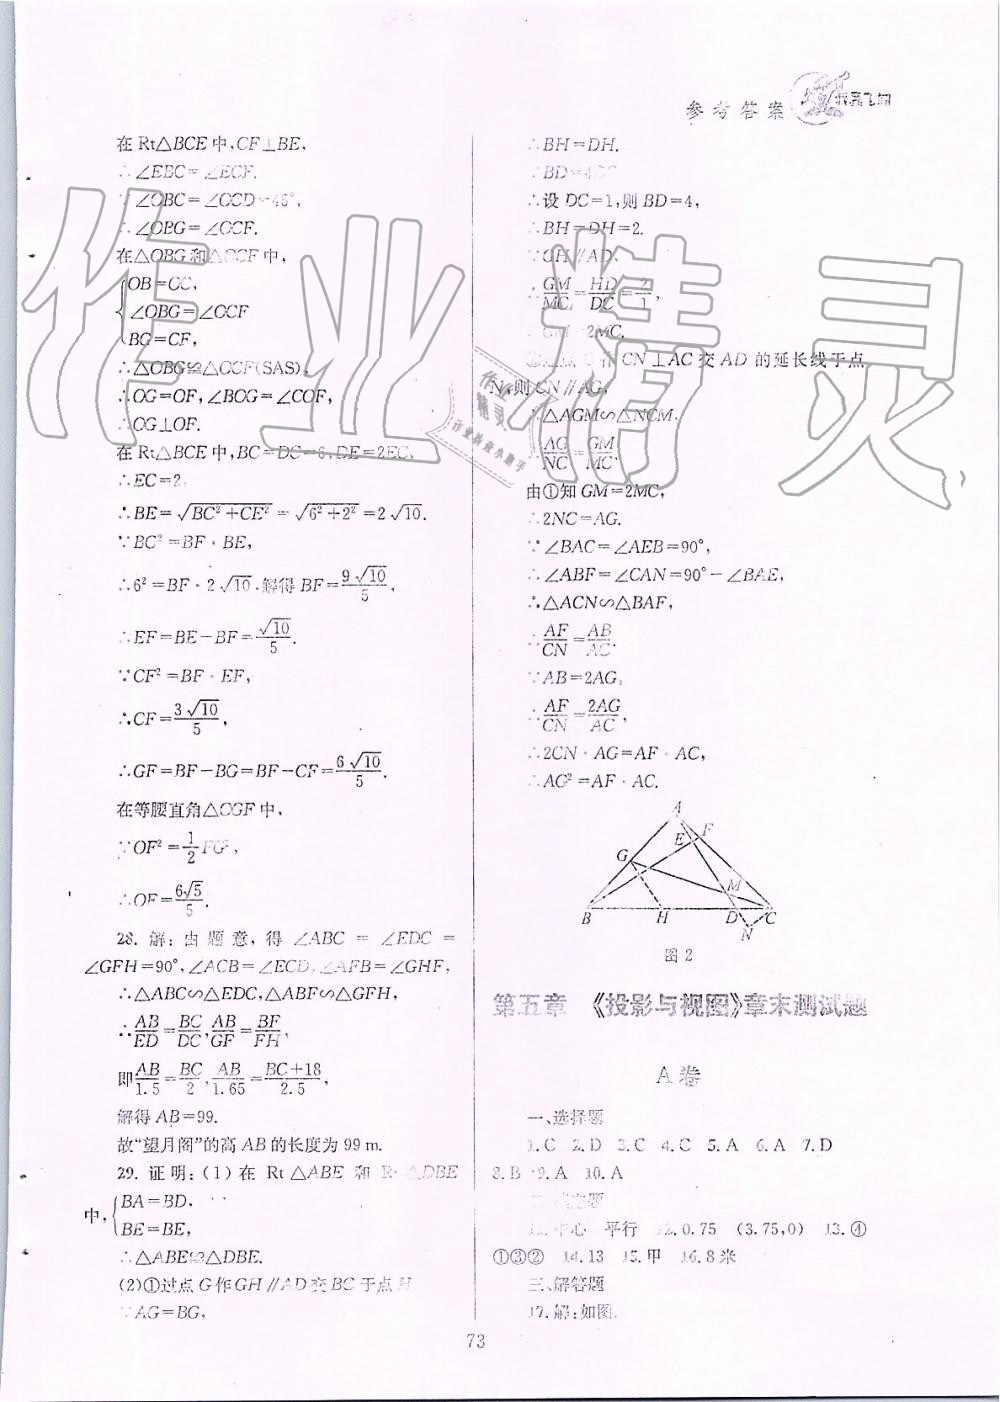 参考答案
在Rt△BCE中,CF⊥BE,
∴∠EBC=∠ECF.
∵∠OBC=∠OCD=45°,
∴∠OBG=∠OCF.
在△OBG和△OCF中,
OB=OC,
∠OBG=∠OCF
BG=CF,
∴△OBG≌△OCF(SAS),
∴OG=OF,∠BOG=∠COF,
∴OG⊥OF.
在Rt△BCE中,BC=DC=6,DE=2EC,
∴EC=2,
∴BE=√(BC²+CE²)=√(6²+2²)=2√10.
∵BC²=BF·BE,
∴6²=BF·2√10,解得BF=9√10/5,
∴EF=BE-BF=√10/5.
∵CF²=BF·EF,
∴CF=3√10/5,
∴GF=BF-BG=BF-CF=6√10/5.
在等腰直角△OGF中,
∵OF²=1/2 FG²,
∴OF=6√5/5.
28. 解:由题意,得∠ABC=∠EDC=
∠GFH=90°,∠ACB=∠ECD,∠AFB=∠GHF,
∴△ABC∽△EDC,△ABF∽△GFH,
∴AB/ED=BC/DC,AB/GF=BF/FH,
即AB/1.5=BC/2,AB/1.65=BC+18/2.5,
解得AB=99.
故“望月阁”的高AB的长度为99 m.
29. 证明:(1)在Rt△ABE和Rt△DBE
中,
BA=BD,
BE=BE,
∴△ABE≌△DBE.
(2)①过点G作GH∥AD交BC于点H
∵AG=BG,
∴BH=DH.
∵BD=4DC,
∴设DC=1,则BD=4,
∴BH=DH=2.
∵GH∥AD,
∴GM/MC=HD/DC=2/1,
∴GM=2MC.
②过点C作CN⊥AC交AD的延长线于点
N,则CN∥AG,
∴△AGM∽△NCM,
∴AG/NC=GM/MC.
由①知GM=2MC,
∴2NC=AG.
∵∠BAC=∠AEB=90°,
∴∠ABF=∠CAN=90°-∠BAE,
∴△ACN∽△BAF,
∴AF/CN=AB/AC.
∵AB=2AG,
∴AF/CN=2AG/AC,
∴2CN·AG=AF·AC,
∴AG²=AF·AC.
A
E F
G
M
B H D C
N
图2
第五章 《投影与视图》章末测试题
A卷
一、选择题
1.C 2.D 3.C 4.C 5.A 6.A 7.D
8.B 9.A 10.A
二、填空题
11.中心 平行 12.0.75 (3.75,0) 13.④
①③② 14.13 15.甲 16.8米
三、解答题
17.解:如图.
73
作业精灵
作业精灵